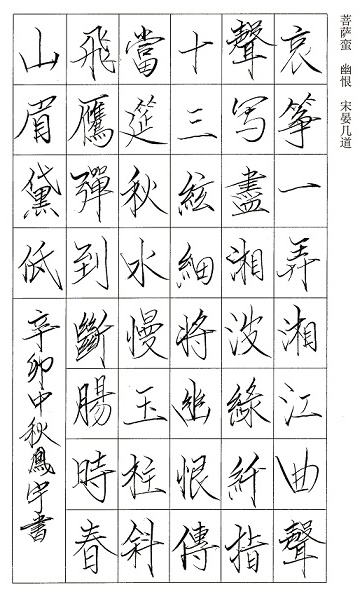 菩萨蛮 幽恨 宋晏几道
哀筝一弄湘江曲聲
聲写盡湘波綠纤指
十三絃細將幽恨傳
當筵秋水慢玉柱斜
飛鴈彈到斷腸時春
山眉黛低
辛卯中秋鳳宇書